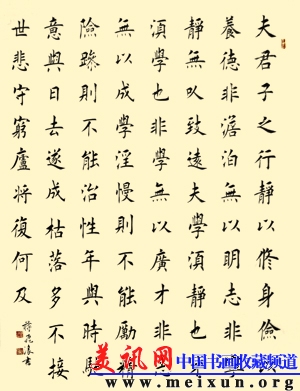 夫君子之行靜以修身儉以
養德非澹泊無以明志非
靜無以致遠夫學湏靜也
湏學也非學無以廣才非
無以成學淫慢則不能勵
險躁則不能治性年與時馳
意與日去遂成枯落多不接
世悲守窮廬將復何及
美讯网 中国书画收藏频道
www.meixun.org